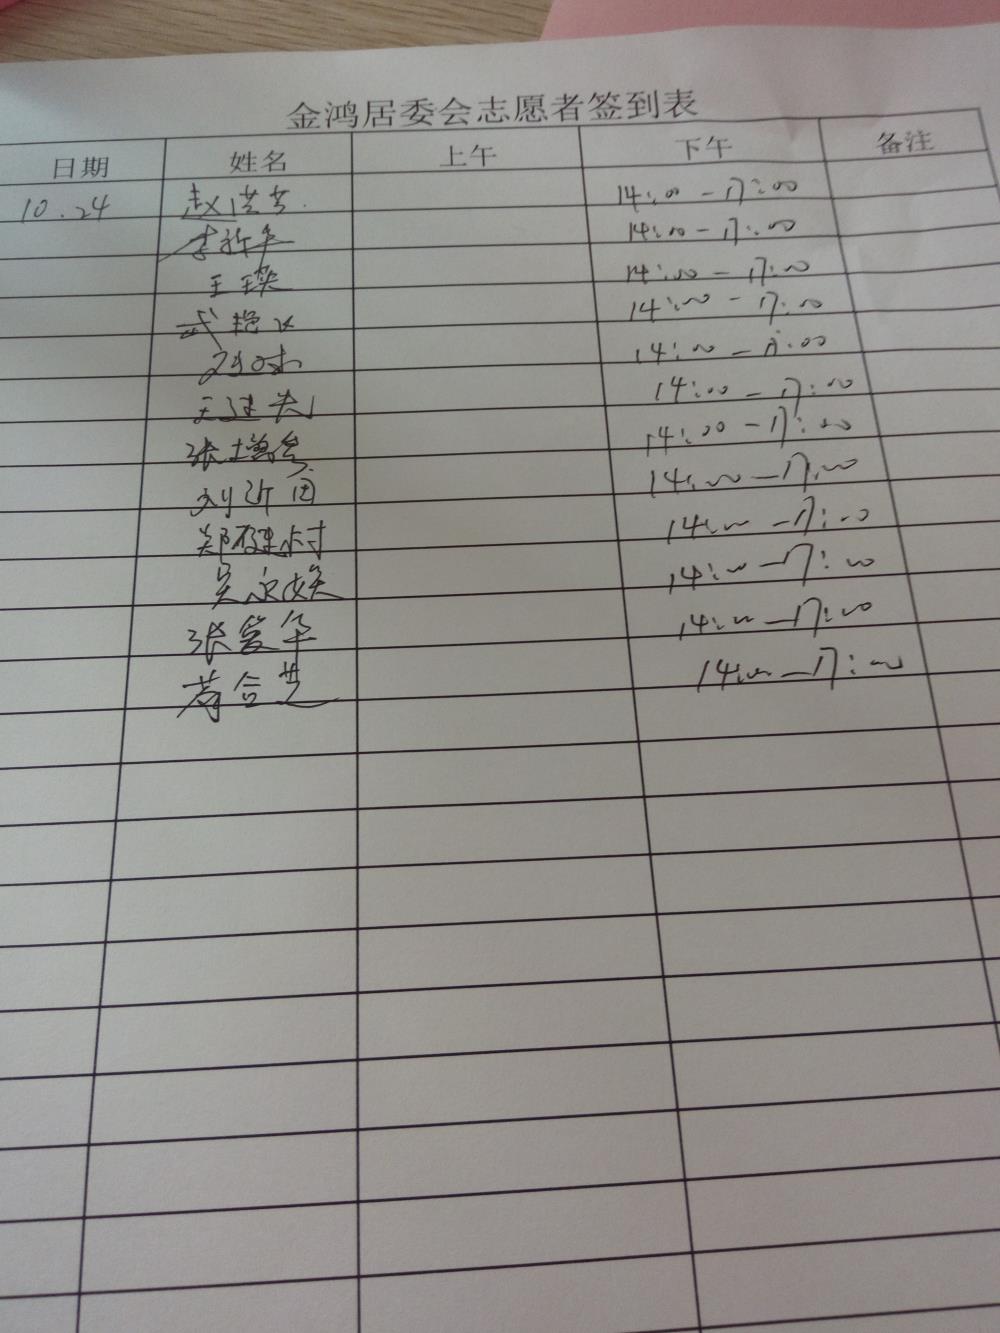 金鸿居委会志愿者签到表
日期 姓名 上午 下午 备注
10.24 赵洪芳 14:00-17:00
李新年 14:00-17:00
王瑛 14:00-17:00
武艳 14:00-17:00
14:00-17:00
王 14:00-17:00
张增 14:00-17:00
刘新国 14:00-17:00
郑 14:00-17:00
吴 14:00-17:00
张爱华 14:00-17:00
14:00-17:00